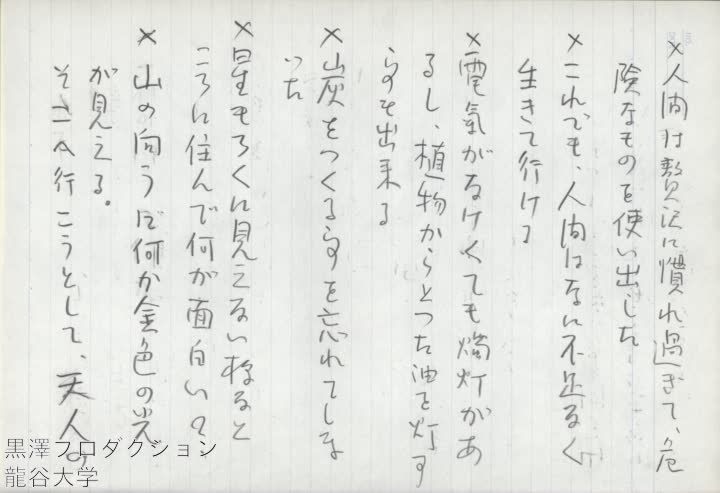 ×人間は贅沢に慣れ過ぎて、危
険なものを使い出した
×これでも、人間はなに不足なく
生きて行ける
×電氣がなくても燭灯があ
るし、植物からとつた油を灯す
事も出来る
×炭をつくる事を忘れてしま
いた
×星もろくに見えない様なと
ころに住んで何が面白いの
×山の向うに何か金色の光
が見える。
そこへ行こうとして、天人の
黒澤プロダクション
龍谷大学